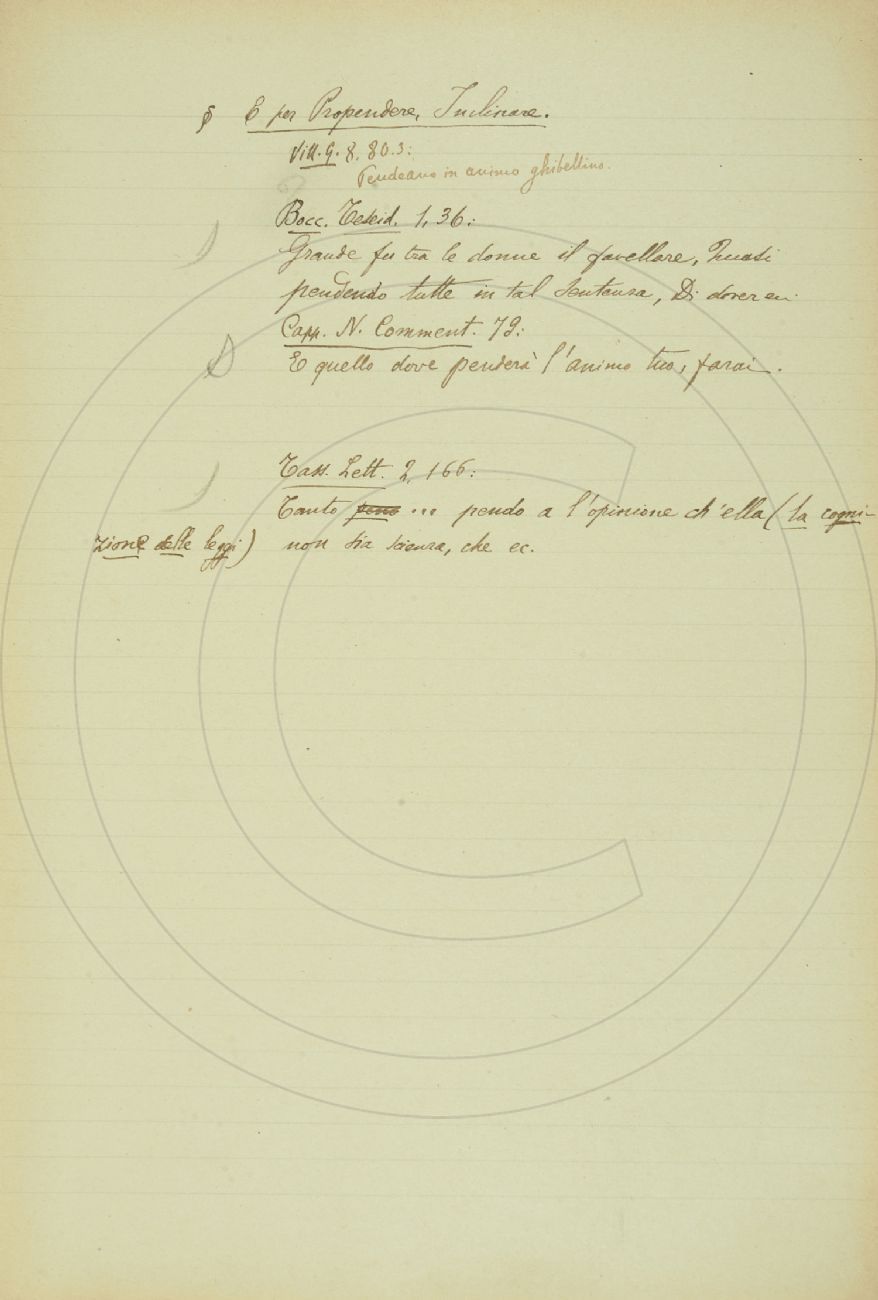 § E per Propendere, Inclinare.
Vill. G. 8. 80. 3:
Pendeano in animo ghibellino.
Bocc. Teseid. 1, 36:
Grande fu tra le donne il favellare, Quasi
pendendo tutte in tal sentenza, Di dover
Capp. N. Comment. 72:
E quello dove penderà l'animo tuo, farai.
Tass. Lett. 2, 166:
Tanto ... pendo a l'opinione ch'ella (la cogni-
zione delle leggi) non sia scienza, che ec.